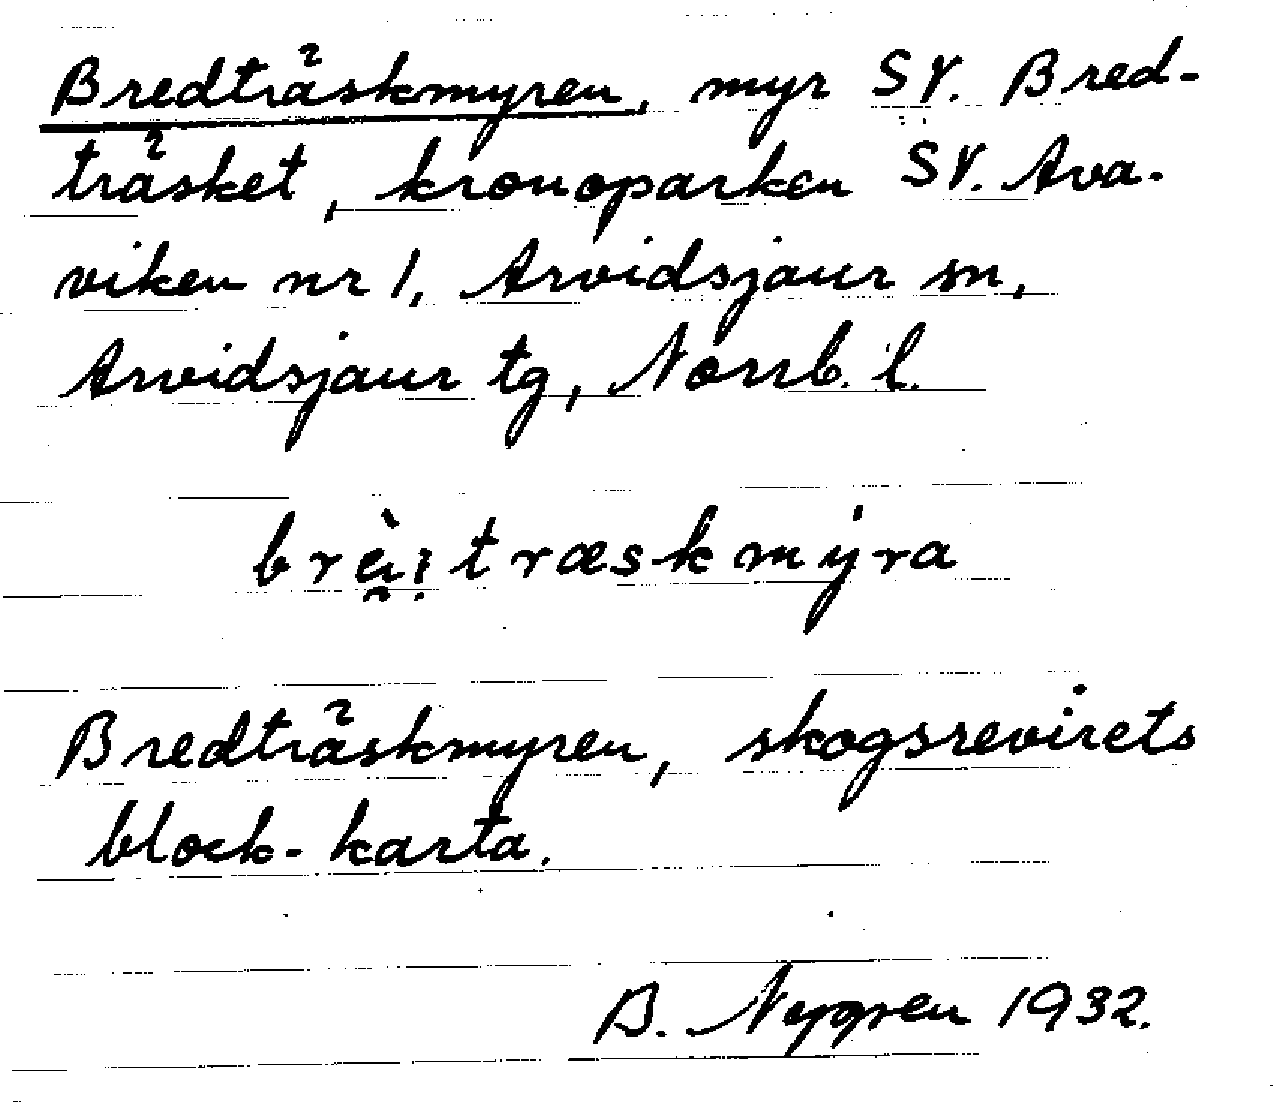 Bredträskmyren, myr SV. Bred-
träsket, kronoparken SV. Ava-
viken nr 1, Arvidsjaur sn,
Arvidsjaur tg, Norrb. l.
brèi̯träskmýra
Bredträskmyren, skogsrevirets
block-karta.
B. Nygren 1932.